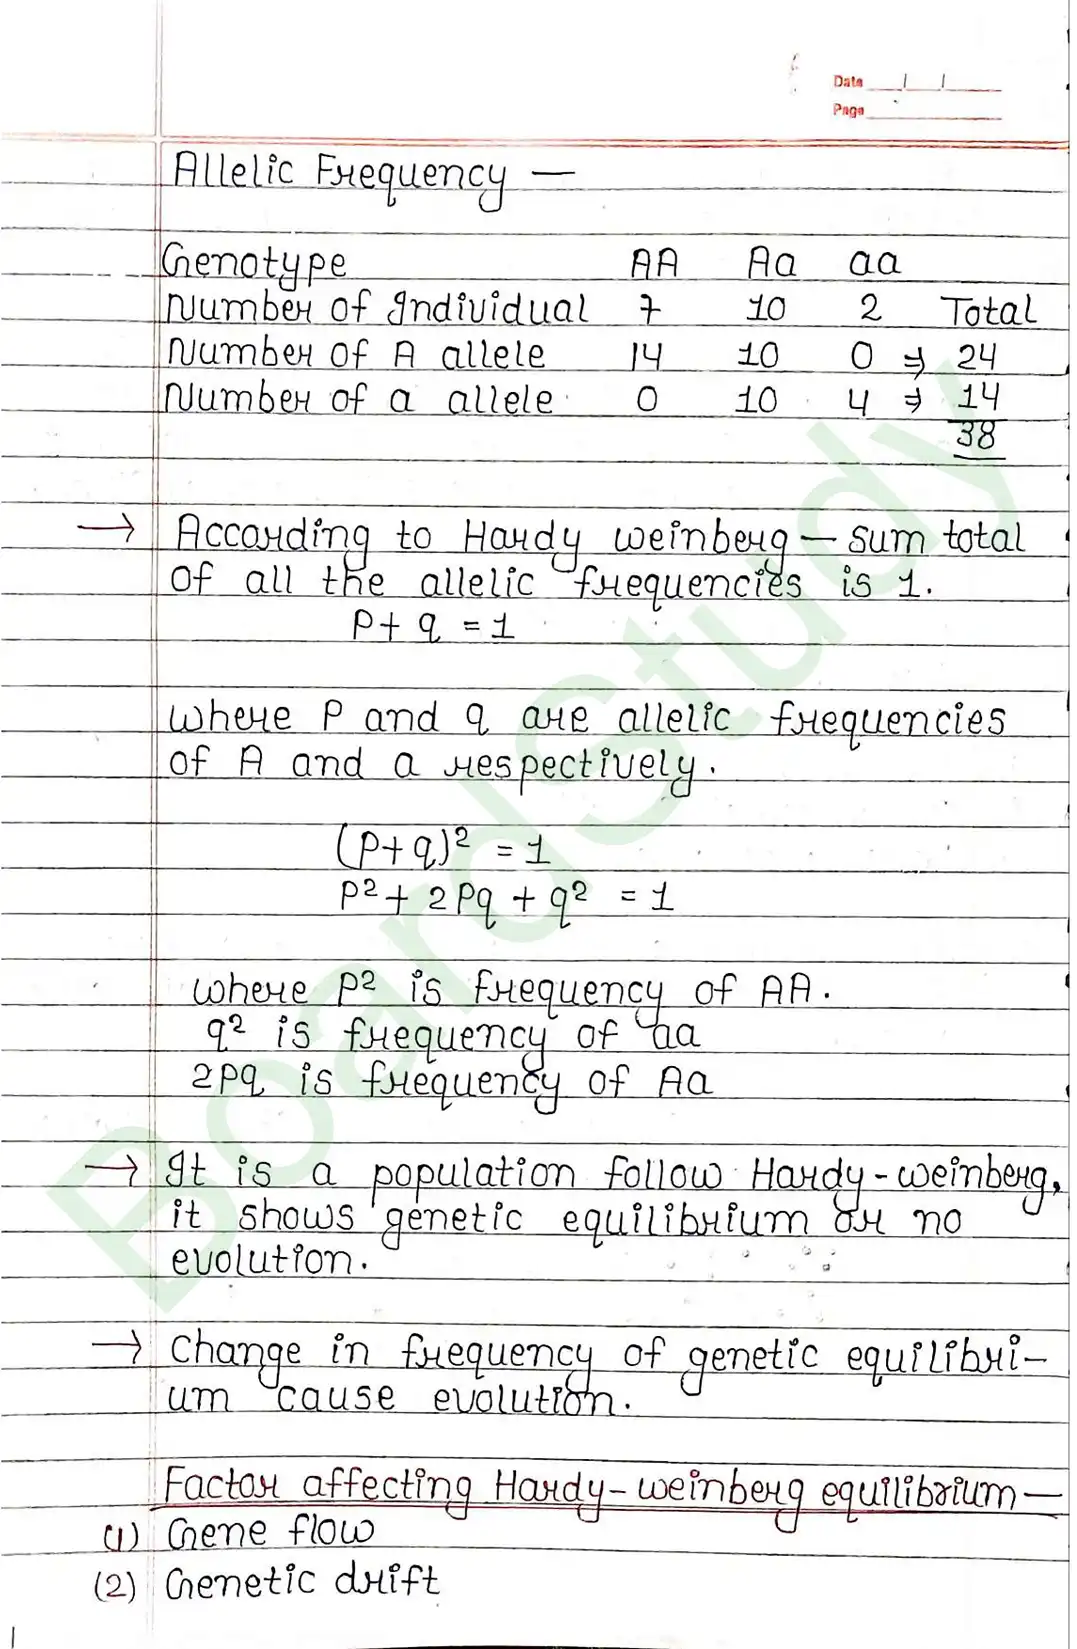 Date
Page
Allelic Frequency —
Genotype AA Aa aa
Number of Individual 7 10 2 Total
Number of A allele 14 10 0 ⇒ 24
Number of a allele 0 10 4 ⇒ 14
38
→ According to Hardy weinberg — sum total
of all the allelic frequencies is 1.
P + q = 1
where P and q are allelic frequencies
of A and a respectively.
(P+q)² = 1
P² + 2Pq + q² = 1
where P² is frequency of AA.
q² is frequency of aa
2Pq is frequency of Aa
→ It is a population follow Hardy-weinberg,
it shows genetic equilibrium or no
evolution.
→ Change in frequency of genetic equilibri-
um cause evolution.
Factor affecting Hardy-weinberg equilibrium —
(1) Gene flow
(2) Genetic drift
BoardStudy